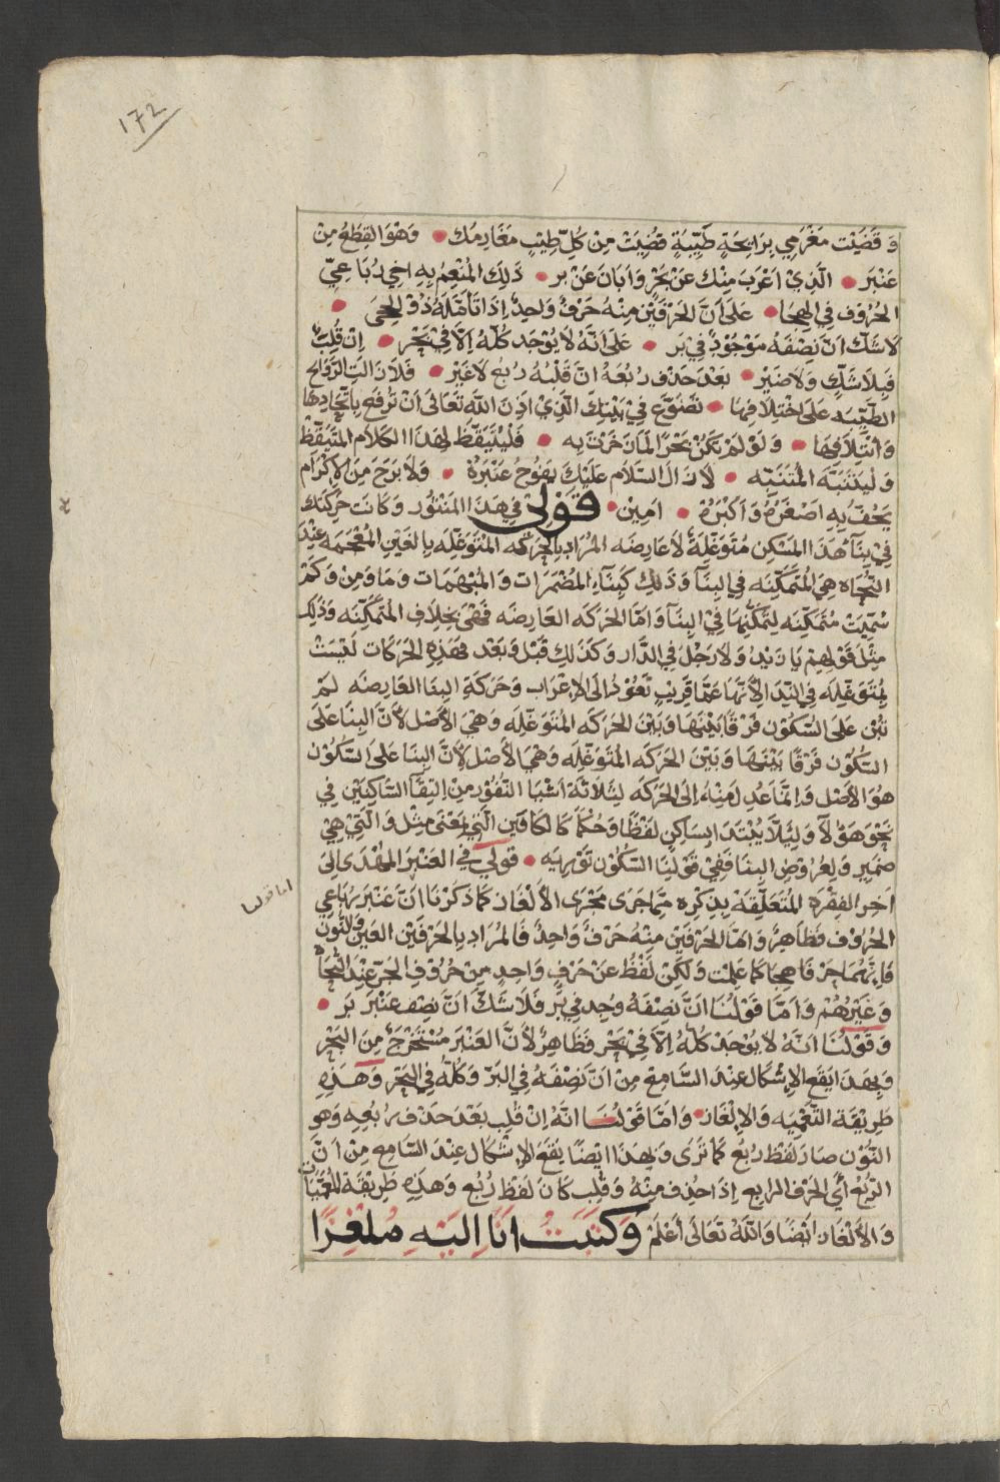 ١٧٢
وَقَضَيْت مَغْرَمِي بِرَايِحَةٍ طَيِّبَةٍ قُضِيَتْ مِنْ كُلِّ طِيْبٍ مَغَارِمُك • وَهْوَ القِطَعُ مِنْ
عَنْبَر • الَّذِيْ اَعْرَبَ مِنْكَ عَنْ بَحْرٍ وَاَبَانَ عَنْ بر • ذَلِكَ المُنْعَمُ بِهِ اخِي رُبَاعِيّ
الحُرُوف فِي الهِجَا • عَلَى اَنَّ الحَرْفَيْن مِنْهُ حَرْفٌ وَاحِدٌ اِذَا تَاَمَّلَهُ ذُوْ الحِجَى •
لَا شَكَّ اَنَّ نِصْفَهُ مَوْجُودٌ فِي بَر • عَلَى اَنَّهُ لَا يُوْجَد كُلّهُ اِلَّا فِي بَحْر • اِنْ قُلِبَ
فَبِلَا شَكٍّ وَلَا ضَيْر • بَعْدَ حَذْفِ رُبْعِهُ اَنَّ قَلْبَهُ رُبعٌ لَا غَيْر • فَلَا زَالَتِ الرَّوَايِح
الطَّيِّبَه عَلَى اخْتِلَافِهَا • تَضَوَّع فِيْ بَيْتِكَ الَّذِيْ اَذِنَ اللّٰه تَعَالَى اَنْ تُرْفَعَ بِاتِّحَادِهَا
وَاْتِلَافِهَا • وَلَوْ لَمْ تَكُنْ بَحْرًا لمَا زَخَرْتَ بِهِ • فَلْيَتَيَقَّظ لِهَذَا الكَلَام المُتَيَقِّظ
وَلْيَتَنَبَّهَ المُتَنَبِّه • لَا زَالَ السَّلَام عَلَيْكَ يَفُوْحُ عَنْبَرُهْ • وَلَا بَرَحَ مِنَ الاِكْرَام
يَحُفُّ بِهِ اَصْغَرُهْ وَاَكْبَرُهْ • امِيْن • قَوْلِي فِي هَذَا المَنْثُوْر وَكَانَت حَرَكَتك
فِيْ بِنَآءِ هَذَا المَسْكِن مُتَوَغِّلَةً لَا عَارِضَه المُرَاد بِالحَرَكَه المُتَوَغِّلَه بِالغَيْنِ المُعْجَمَة عِنْدَ
النُّحَاه هِيَ المُتَمَكِّنَه فِي البِنَآ وَذَلِكَ كَبِنَآءِ المُضْمَرَات وَالمُبْهَمَات وَمَا وَمِنْ وَكَمْ
سُمِّيَتْ مُتَمَكِّنَه لِتَمَكُّنِهَا فِيْ البِنَآ وَاَمَّا الحَرَكَه العَارِضَه فَهْيَ بِخِلَاف المُتَمَكِّنَه وَذَلِك
مِثْلَ قَوْلِهِمْ يَا زَيْدُ وَلَا رَجُلَ فِي الدَّار وَكَذَلِك قَبْلُ وَبَعْد فَهَذِهِ الحَرَكَات لَيْسَتْ
بِمُتَوَغِّلَه فِي النِّدَا لِاَنَّهَا عَمَّا قَرِيْبٍ تَعُوْدُ اِلَى الاِعْرَاب وَحَرَكَةِ البِنَا العَارِضَه لَمْ
تُبْنَ عَلَى السّكُوْن فَرْقًا بَيْنَهَا وَبَيْنَ الحَرَكَه المُتَوَغِّلَه وَهْيَ الاَصْل لِاَنَّ البِنَا عَلَى
السّكُوْن فَرْقًا بَيْنَهَا وَبَيْنَ الحَرَكَه المُتَوَغِّلَه وَهْيَ الاَصْل لِاَنَّ البِنَا عَلَى السّكُوْن
هُوَ الاَصْل وَاِنَّمَا عُدِلَ مِنْهُ اِلَى الحَرَكَه لِثَلَاثَة اَشْيَا النُّفُوْر مِنْ الْتِقَآ السَّاكِنَيْن فِي
نَحْوِ هَؤُلَآ وَلِيَلَّا يُبْتَدَا بِسَاكِنٍ لَفْظًا وَحُكْمًا كَالكَافَيْن الَّتِي بِمَعْنَى مِثْل وَالَّتِيْ هِيْ
ضَمِيْر وَلِعُرُوْضِ البِنَا فَفِيْ قَوْلِنَا السّكُوْن تَوْرِيَه • قَوْلِي فِي العَنْبَرِ المُهْدَى اِلَى
اَخِرِ الفِقْرَه المُتَعَلِّقَه بِذِكْرِه مِمَّا جَرَى مَجْرَى الاَلْغَاز كَمَا ذَكَرْنَا اَنَّ عَنْبَر رُبَاعِي
الحُرُوْف فَظَاهِرٌ وَاَمَّا الحَرْفَيْن مِنْهُ حَرْفٌ وَاحِدٌ فَالمُرَاد بِالحَرْفَيْن العَيْن وَالنُّوْن
اما قولنا
فَاِنَّهُمَا حَرْفَا هِجَا كَمَا عَلِمْت وَلَكِنْ لَفْظُ عَنْ حَرْفٍ وَاحِدٍ مِنْ حُرُوْفِ الجَرّ عِنْدَ النُّحَاةِ
وَغَيْرِهُمْ وَاَمَّا قَوْلُنَا اَنَّ نِصْفَهُ وُجِد فِي بَر فَلَا شَكَّ اَنَّ نِصْف عَنْبَر بَر •
وَقَوْلُنَا اَنَّهُ لَا يُوْجَدْ كُلّهُ اِلَّا فِي بَحْر فَظَاهِرٌ لِاَنَّ العَنْبَرَ مُسْتَخْرَجٌ مِنَ البَحْر
وَبِهَذَا يَقَع الاِشْكَال عِنْدَ السَّامِعْ مِنْ اَنَّ نِصْفَهُ فِي البَرّ وَكُلَّهُ فِي البَحْر وَهَذِهِ
طَرِيْقَة التَّعْمِيَه وَالاِلْغَاز • وَاَمَّا قَوْلُنَا انَّهُ اِنْ قُلِب بَعْدَ حَذْف رُبُعِهِ وَهُوَ
النُّوْن صَارَ لَفْظ رُبع كَمَا تَرَى وَبِهَذَا ايْضًا يَقَعُ الاِشْكَال عِنْدَ السَّامِع مِنْ اَنَّ
الرُّبْعُ اَيْ الحَرْف الرَّابِع اِذَا حُذِف مِنْهُ وَقُلِب كَانَ لَفْظ رُبْعٍ وَهَذِهِ طَرِيْقَة المُعَمَّيَاتْ
وَالاَلْغَاز اَيْضًا وَاللّٰهُ تَعَالَى اَعْلَمْ وَكَتَبْت اَنَا اِلَيْهِ مُلْغِزًا